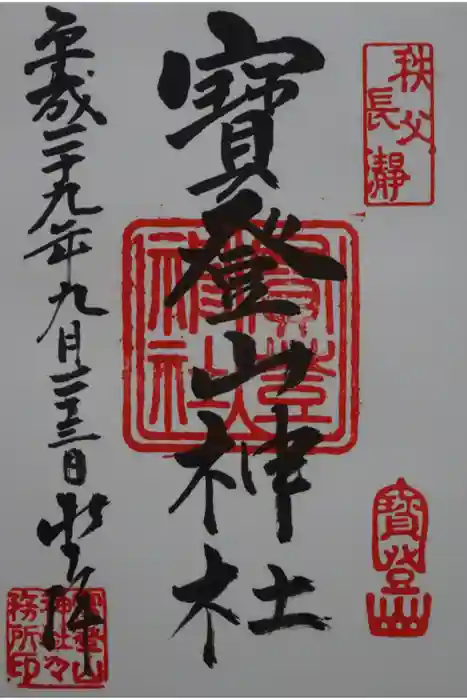 秩父
長瀞
寳登山神社
寳登山
平成二十九年九月二十三日
登拝
寳登山
神社々
務所印